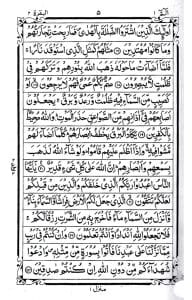 الٓمّٓ ١ ٥ البقرة ٢
اُولٰٓئِكَ الَّذِيْنَ اشْتَرَوُا الضَّلٰلَةَ بِالْهُدٰى فَمَا رَبِحَتْ تِّجَارَتُهُمْ
وَمَا كَانُوْا مُهْتَدِيْنَ ۝ مَثَلُهُمْ كَمَثَلِ الَّذِى اسْتَوْقَدَ نَارًا
فَلَمَّآ اَضَآءَتْ مَا حَوْلَهٗ ذَهَبَ اللّٰهُ بِنُوْرِهِمْ وَتَرَكَهُمْ فِىْ
ظُلُمٰتٍ لَّا يُبْصِرُوْنَ ۝ صُمٌّۢ بُكْمٌ عُمْىٌ فَهُمْ لَا يَرْجِعُوْنَ ۝ اَوْ
كَصَيِّبٍ مِّنَ السَّمَآءِ فِيْهِ ظُلُمٰتٌ وَّرَعْدٌ وَّبَرْقٌ يَجْعَلُوْنَ
اَصَابِعَهُمْ فِىْٓ اٰذَانِهِمْ مِّنَ الصَّوَاعِقِ حَذَرَ الْمَوْتِ وَاللّٰهُ مُحِيْطٌۢ
بِالْكٰفِرِيْنَ ۝ يَكَادُ الْبَرْقُ يَخْطَفُ اَبْصَارَهُمْ كُلَّمَآ اَضَآءَ لَهُمْ
مَّشَوْا فِيْهِ وَاِذَآ اَظْلَمَ عَلَيْهِمْ قَامُوْا وَلَوْ شَآءَ اللّٰهُ لَذَهَبَ
بِسَمْعِهِمْ وَاَبْصَارِهِمْ اِنَّ اللّٰهَ عَلٰى كُلِّ شَىْءٍ قَدِيْرٌ ۝ يٰٓاَيُّهَا
النَّاسُ اعْبُدُوْا رَبَّكُمُ الَّذِىْ خَلَقَكُمْ وَالَّذِيْنَ مِنْ قَبْلِكُمْ لَعَلَّكُمْ
تَتَّقُوْنَ ۝ الَّذِىْ جَعَلَ لَكُمُ الْاَرْضَ فِرَاشًا وَّالسَّمَآءَ بِنَآءً
وَّاَنْزَلَ مِنَ السَّمَآءِ مَآءً فَاَخْرَجَ بِهٖ مِنَ الثَّمَرٰتِ رِزْقًا لَّكُمْ
فَلَا تَجْعَلُوْا لِلّٰهِ اَنْدَادًا وَّاَنْتُمْ تَعْلَمُوْنَ ۝ وَاِنْ كُنْتُمْ فِىْ رَيْبٍ
مِّمَّا نَزَّلْنَا عَلٰى عَبْدِنَا فَاْتُوْا بِسُوْرَةٍ مِّنْ مِّثْلِهٖ وَادْعُوْا
شُهَدَآءَكُمْ مِّنْ دُوْنِ اللّٰهِ اِنْ كُنْتُمْ صٰدِقِيْنَ ۝
منزل ١